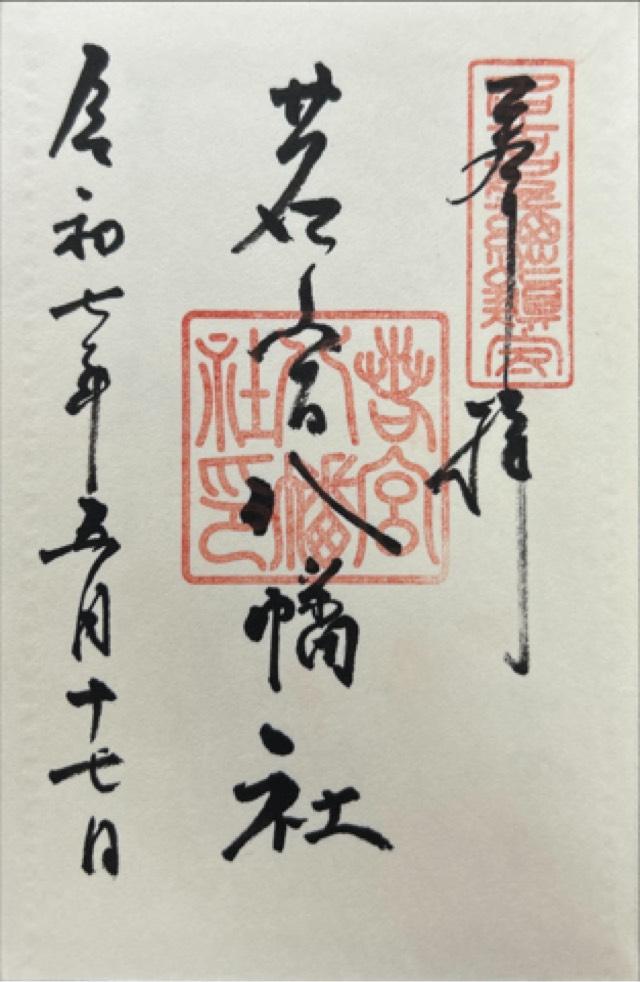 奉拝
若宮八幡社
若宮八幡社印
令和七年五月十七日